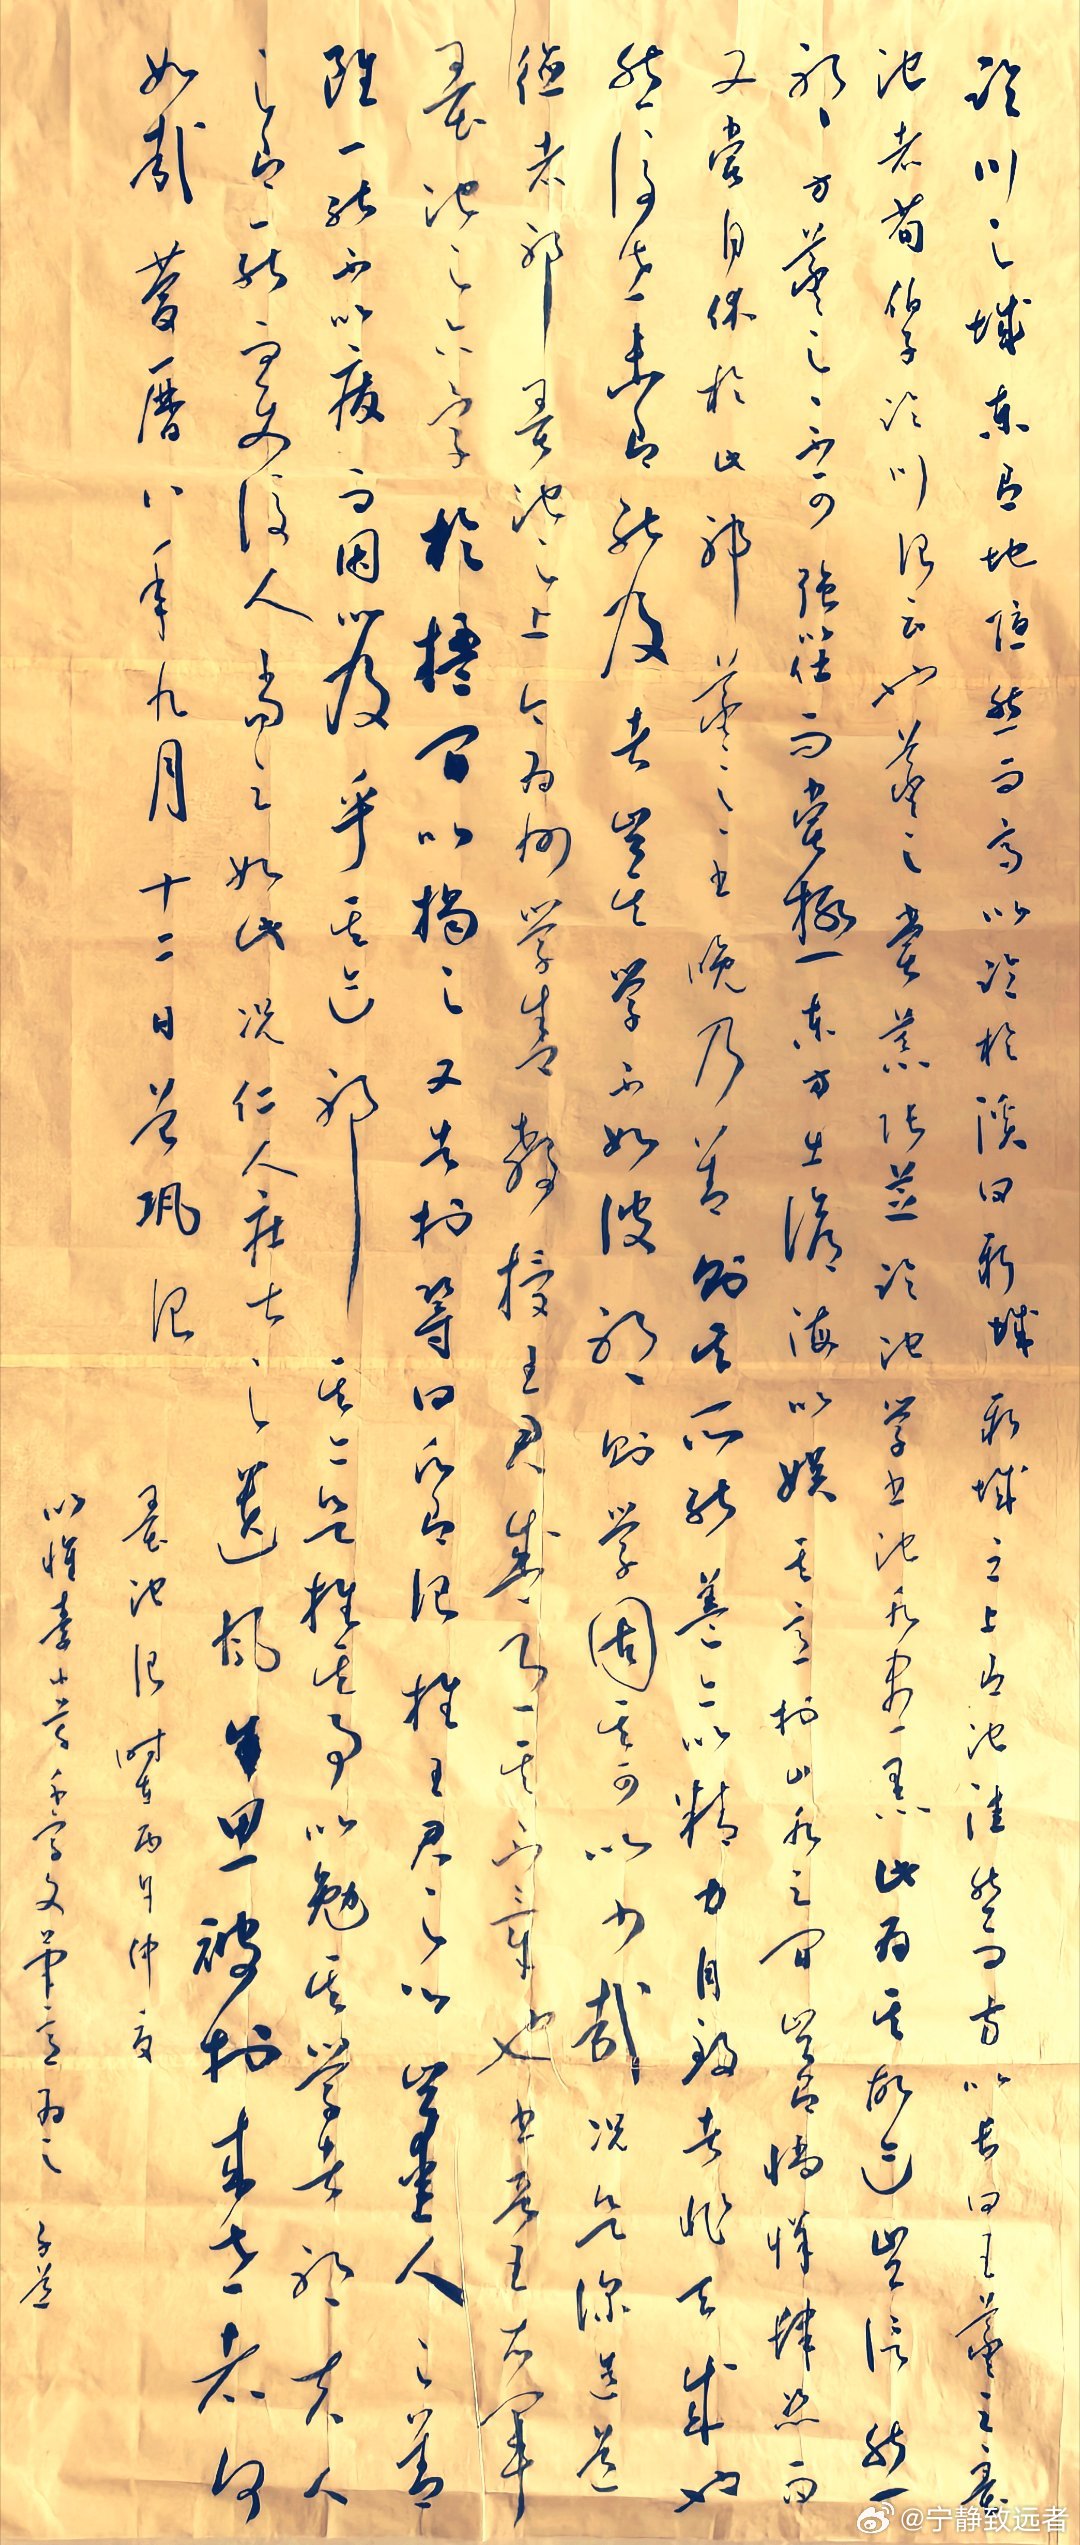 临川之城东有地隐然而高以临于溪曰新城新城之上有池洼然而方以长曰王羲之之墨
池者荀伯子临川记云也羲之尝慕张芝临池学书池水尽黑此为其故迹岂信然
邪方羲之之不可强以仕而尝极东方出沧海以娱其意于山水之间岂有徜徉肆恣而
又尝自休于此邪羲之之书晚乃善则其所能盖亦以精力自致者非天成也
然后世未有能及者岂其学不如彼邪则学固其可以少哉况欲深造道
德者邪墨池之上今为州学舍教授王君盛恐其不章也书晋王右军
墨池之六字于楹间以揭之又告于巩曰愿有记推王君之心岂爱人之善
虽一能不以废而因以及乎其迹邪其亦欲推其事以勉其学者邪夫人
之有一能而使后人尚之如此况仁人庄士之遗风余思被于来世者何
如哉庆历八年九月十二日曾巩记
墨池记 时在丙午仲夏
以怀素小草千字文笔意为之
@宁静致远者